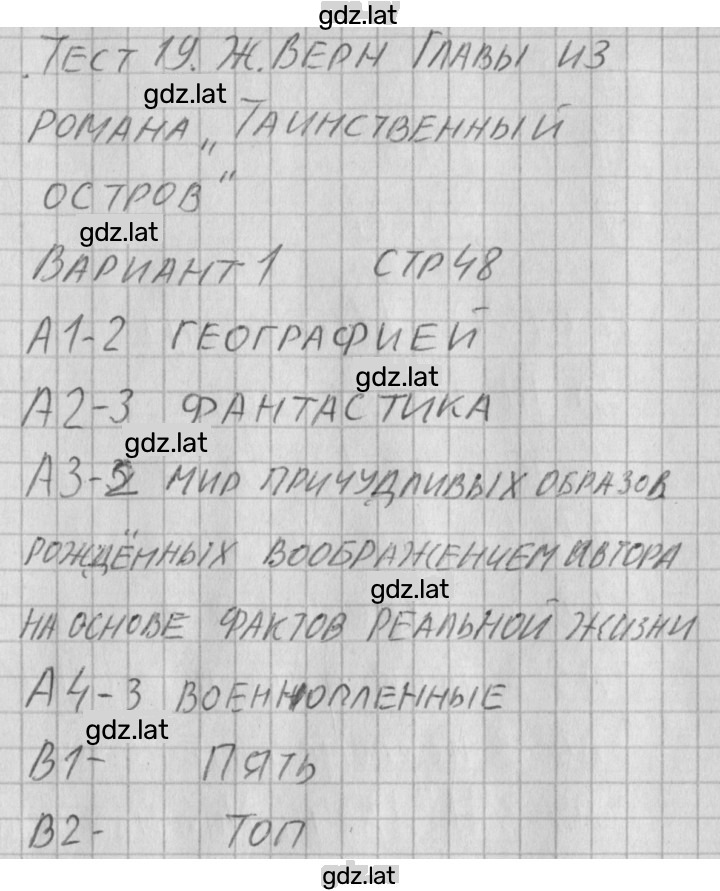 gdz.lat
Тест 19. Ж. Верн Главы из
gdz.lat
романа „Таинственный
остров"
gdz.lat
Вариант 1 стр 48
А1-2 географией
gdz.lat
А2-3 фантастика
gdz.lat
А3-2 мир причудливых образов
рождённых воображением автора
gdz.lat
на основе фактов реальной жизни
А4-3 военнопленные
gdz.lat
В1- Пять
В2- Топ
gdz.lat